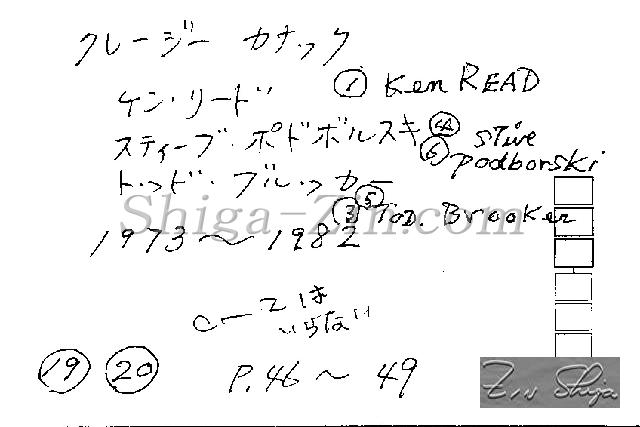 クレージー カナック
ケン・リード ① Ken READ
スティーブ・ポドボルスキ ④A ⑥ Steve Podborski
トッド・ブルッカー ⑤ ③ TOD. Brooker
Shiga-Zin.com
1973〜1982
はいらない
⑲ ⑳ P.46〜49
Zin Shiga